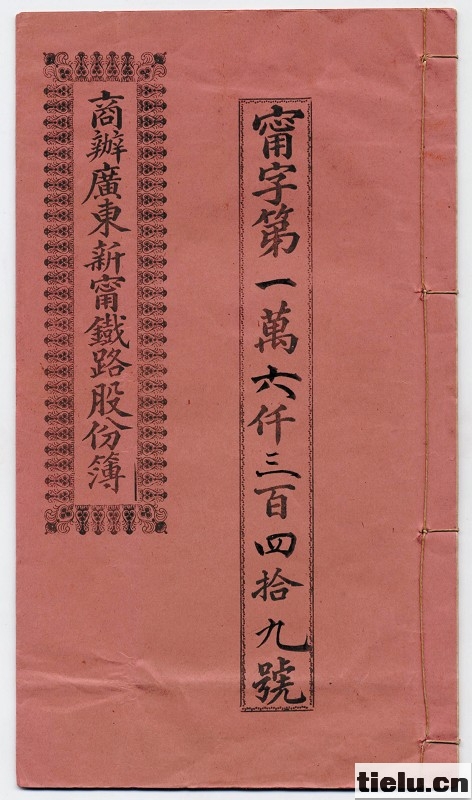 甯字第一萬六仟三百四拾九號
商辦廣東新甯鐵路股份簿
tielu.cn